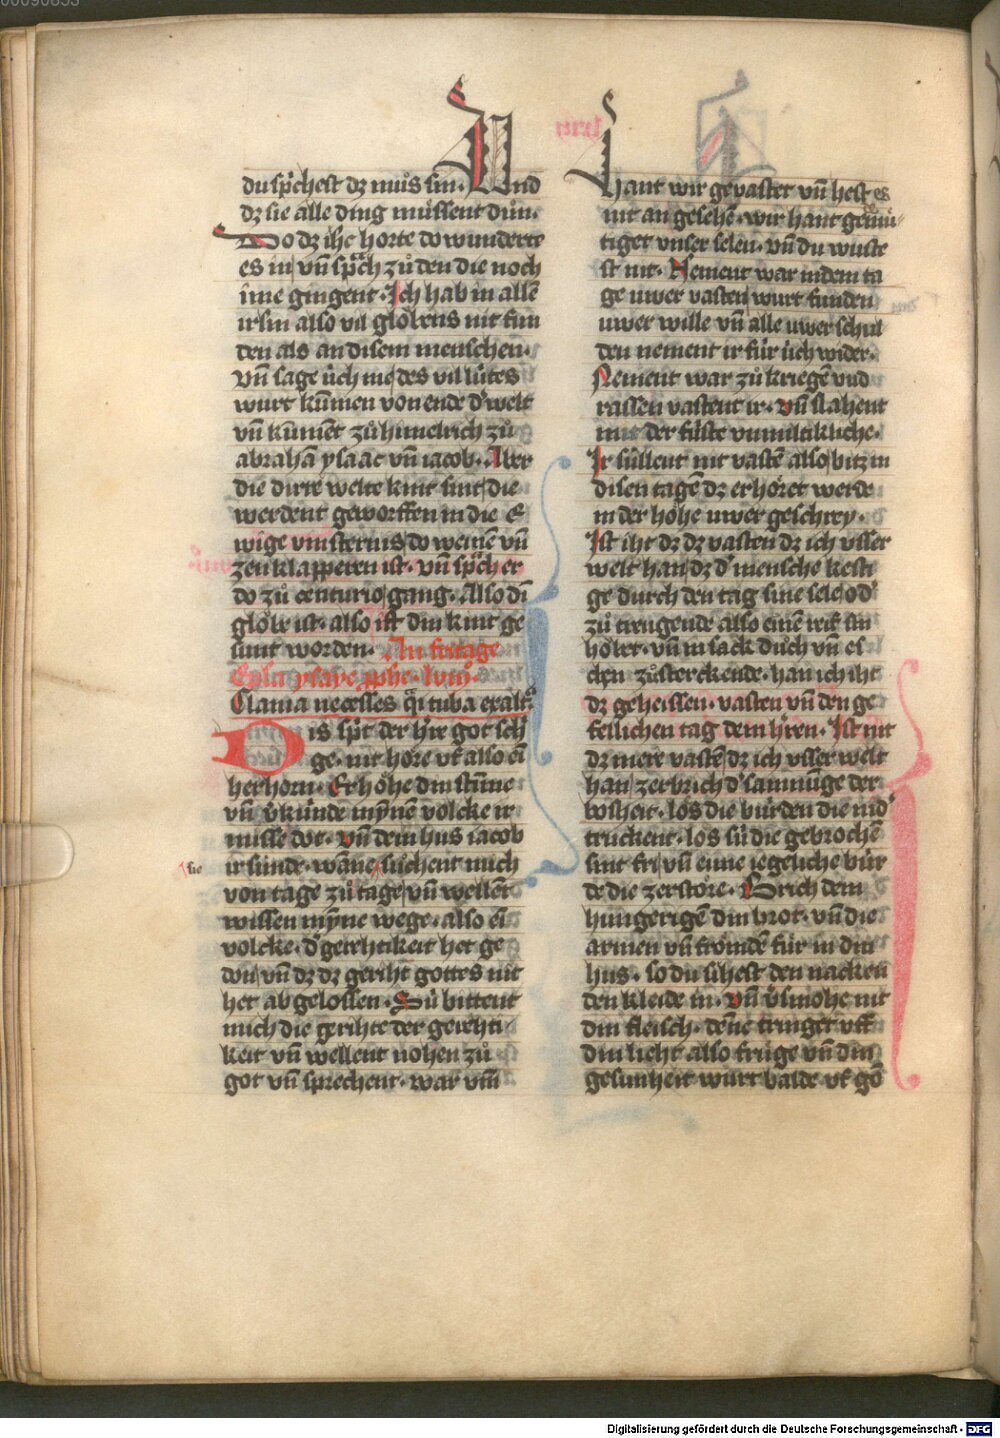 du spͤchest dz muͦs sin· Und
dz sie alle ding muͤssent duͦn·
Do dz ihc horte do wunderte
es in vn̄ sp̄ch zuͦ den die noch
ime gingent· Ich hab in alle̅
irsin also vil globens nit fun
den als an disem menschen·
Vn̄ sage uͤch me des vil luͤtes
wurt kuͤmen von ende d' welt
vn̄ kuͤme̅t zuͦ himelrich zuͦ
abraha̅ ysaac vn̄ iacob· Aber
die dirre welte kint sint die
werdent geworffen in die E
wige vinsternis do weine̅ vn̄
zen klapperen ist· vn̄ sp̄ch er
do zuͦ centurio gang· Also di̅
globe ist· also ist din kint ge
sunt worden· An fritage
Clama ne cesses q̄i tuba exalt
Dis sp̄t der hͤre got schͤ
ge· nit hoͤre vf also ei̅
herhorn· Erhoͤhe din stim̅e
vn̄ v'kuͤnde myne̅ volcke ir
misse dot· vn̄ dem hus iacob
ir suͤnde· wan̅e suͦchent mich
sie
von tage zuͦ tage vn̄ welle̅t
wissen myne wege· also ei̅
volcke· d' gerehtikeit het ge
don vn̄ dz dz geriht gottes nit
het abgelossen· Suͤ bittent
mich die gerihte der gerehti
keit vn̄ wellent nohen zuͦ
got vn̄ sprechent· war vm̅
hant wir gevastet vn̄ hest es
nit angesehen· wir hant gedemuͤ
tiget vnser selen· vn̄ du wuste
st nit· Nement war in dem ta
ge uwer vasten wurt funden
uwer wille vn̄ alle uwer schul
den nement ir fuͤr uͤch wider·
Nement war zuͦ kriege̅ vnd
rassen vastent ir· vn̄ slahent
mit der fuͤste vnmiltikliche·
Ir suͤllent nit vaste̅ also bitz in
disen tage̅ dz erhoͤret werde
in der hoͤhe uwer geschrey·
Ist iht dz dz vasten dz ich vsser
welt han dz d' mensche kesti
ge durch den tag sine sele od'
zuͦ tringende also eine̅ reif sin
hoͤbet· vn̄ in sack duͦch vn̄ es
chen zuͦ sterckende· han ich iht
dz geheissen· vasten vn̄ den ge
fellichen tag dem hͤren· Ist nit
dz mere vaste̅ dz ich vsser welt
han zerbrich d' samnu̅ge der
bosheit· los die buͤrden die nid'
truckent· los suͤ die gebroche̅
sint fri vn̄ eine iegeliche buͤr
de die zerstoͤre· Brich dem
hungerige̅ din brot· vn̄ die
armen vn̄ froͤmde̅ fuͤr in din
hus· so du sihest den nacken
den kleide in· vn̄ v'smohe nit
din fleisch· den̅e tringet vff
din lieht also fruͤge vn̄ din
gesunheit wurt balde vf go̅
Digitalisierung gefördert durch die Deutsche Forschungsgemeinschaft · DFG